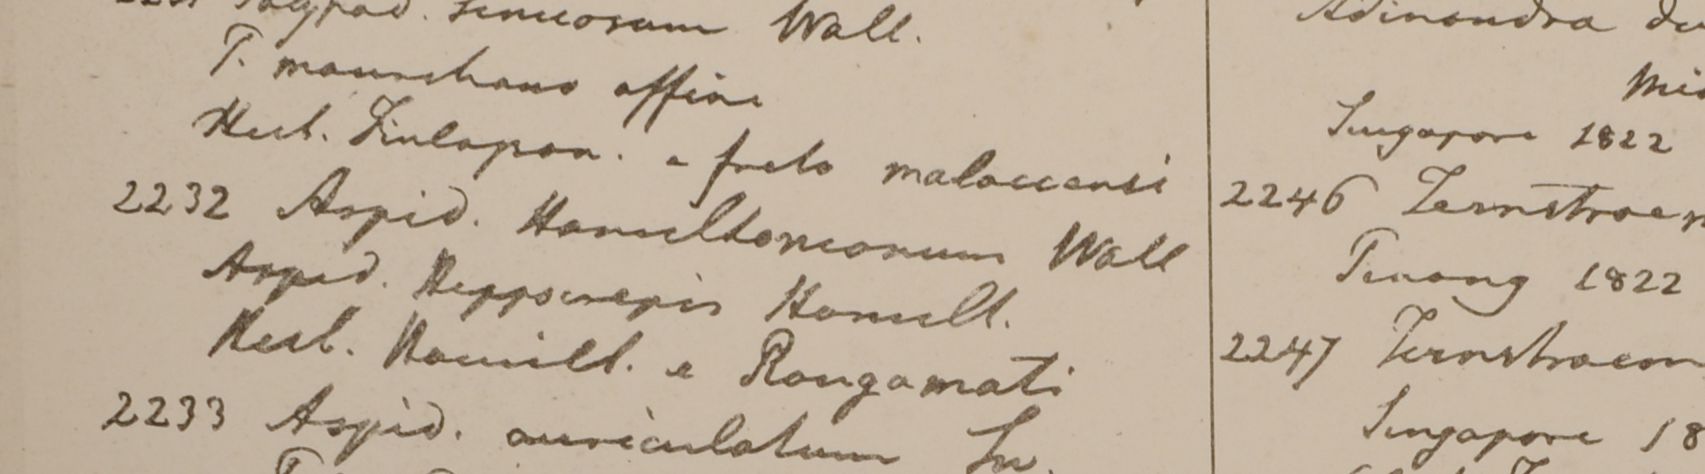 2231 Polypod. Wall.
P. affine
Herb. Finlayson. e freto malaccensi
2232 Aspid. Hamiltonianum Wall
Aspid. Hippocrepis Hamilt.
Herb. Hamilt. e Rangamati
2233 Aspid. auriculatum Sw.
Adinandra du
Singapore 1822
2246 Ternstroem
Penang 1822
2247 Ternstroem
Singapore 18